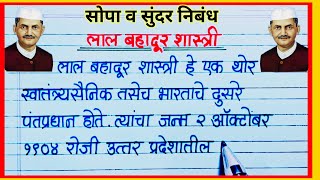 सोपा व सुंदर निबंध
लाल बहादूर शास्त्री
लाल बहादूर शास्त्री हे एक थोर
स्वातंत्र्यसैनिक तसेच भारताचे दुसरे
पंतप्रधान होते. त्यांचा जन्म २ ऑक्टोंबर
१९०४ रोजी उत्तर प्रदेशातील